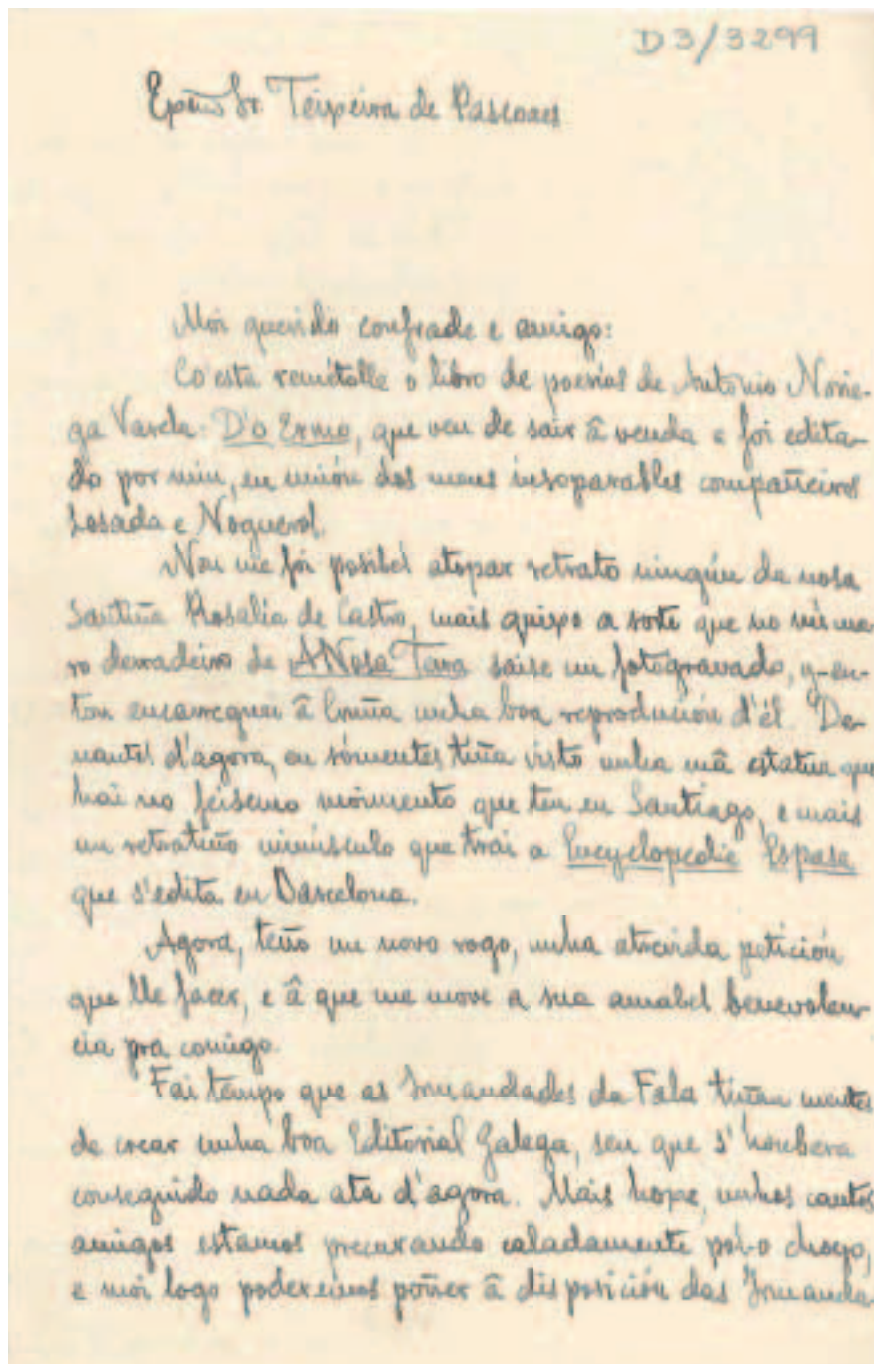 D3/3299
Exmo Sr. Teixeira de Pascoaes
Moi querido confrade e amigo:
Co'esta remítolle o libro de poesías de Antonio Norie-
ga Varela D'o Ermo, que veu de saír â venda e foi edita-
do por min, en unión dos meus insoparables compañeiros
Losada e Noguerol.
Non me foi posibel atopar retrato ningún da nosa
Santiña Rosalía de Castro, mais quixo a sorte que no núme-
ro derradeiro de A Nosa Terra saíse un fotogravado, y-en-
ton encarreguei â Cruña unha boa reprodución d'él. De-
nantes d'agora, eu sómentes tiña visto unha mâ estatua que
hai no feísemo moimento que ten en Santiago, e mais
un retratiño minúsculo que trai a Encyclopedia Espasa
que s'edita en Barcelona.
Agora, teño un novo rogo, unha atrevida petición
que lle facer, e â que me move a sua amabel benevolen-
cia pra comigo.
Fai tempo que as Irmandades da Fala tiñan mentes
de crear unha boa Editorial Galega, sen que s'houbera
conseguido nada ata d'agora. Mais hoxe, unhos cantos
amigos estamos precurando caladamente pol-o choyo,
e moi logo poderemos poñer â disposición das Irmanda